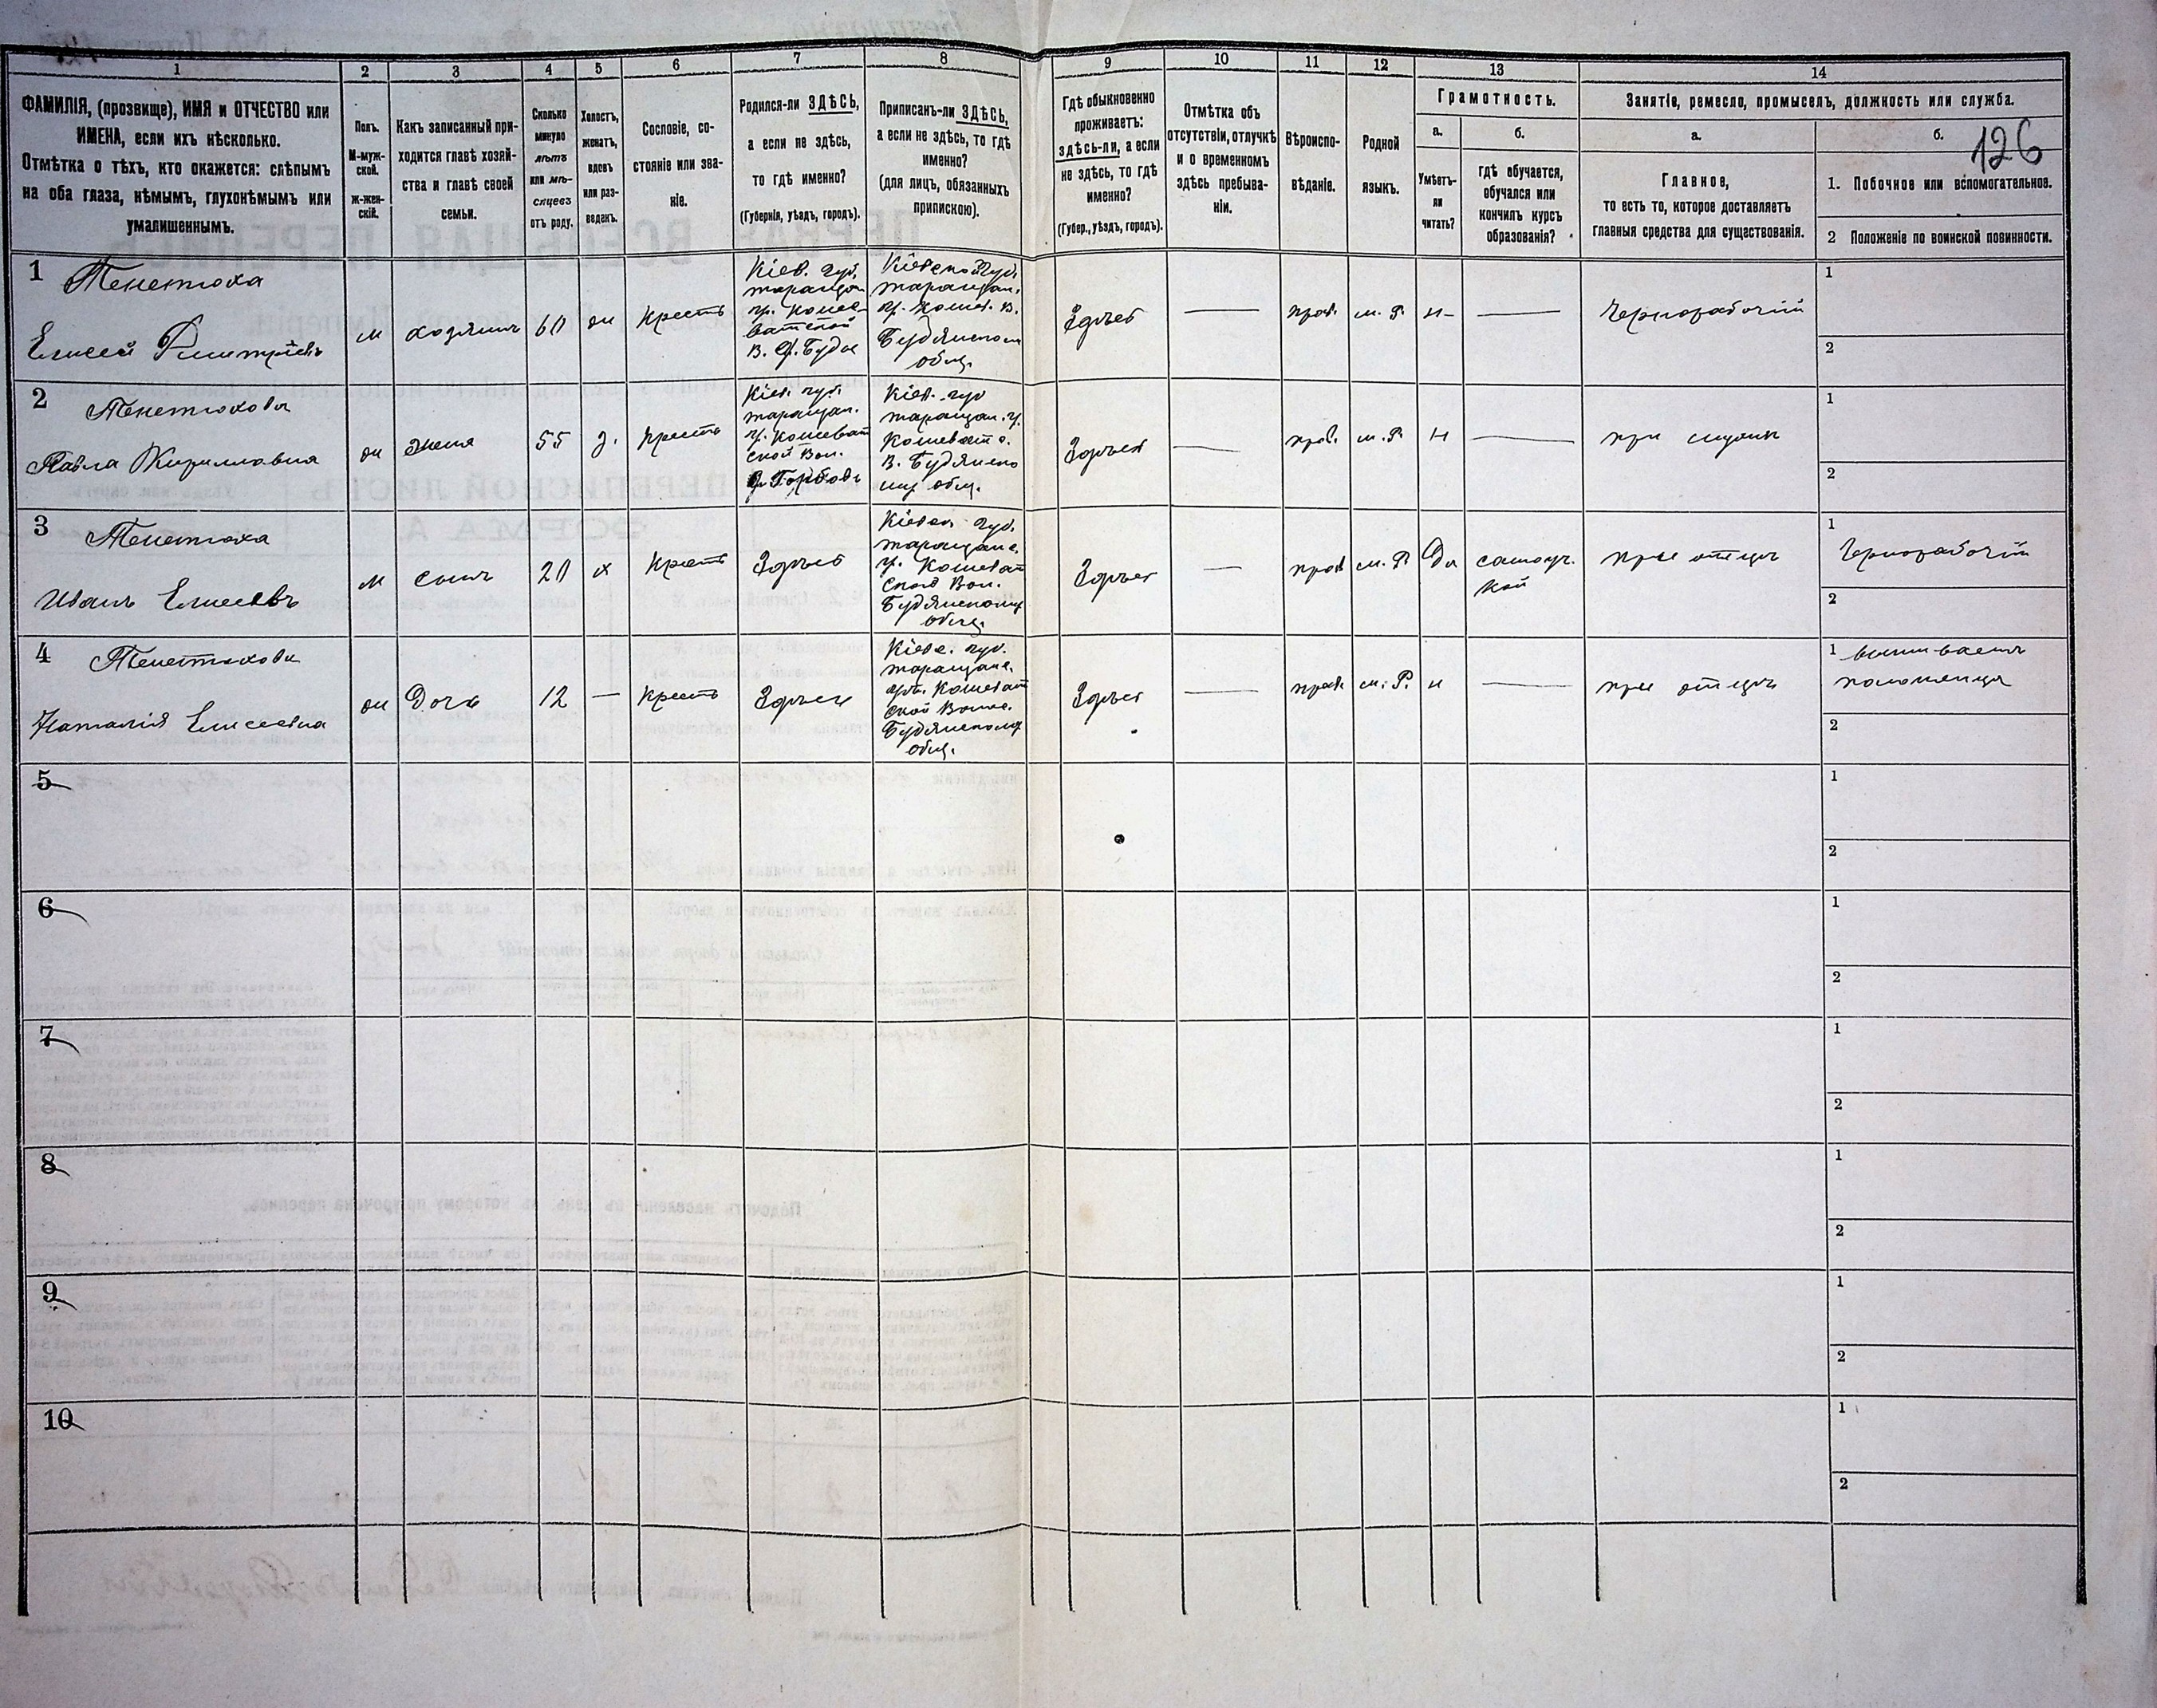 1 2 3 4 5 6 7 8 9 10 11 12 13 14
ФАМИЛІЯ, (прозвище), ИМЯ и ОТЧЕСТВО или
ИМЕНА, если ихъ нѣсколько.
Отмѣтка о тѣхъ, кто окажется: слѣпымъ
на оба глаза, нѣмымъ, глухонѣмымъ или
умалишеннымъ.
Полъ.
М-муж-
ской.
ж-жен-
скій.
Какъ записанный при-
ходится главѣ хозяй-
ства и главѣ своей
семьи.
Сколько
минуло
лѣтъ
или мѣ-
сяцевъ
отъ роду.
Холостъ,
женатъ,
вдовъ
или раз-
веденъ.
Сословіе, со-
стояніе или зва-
ніе.
Родился-ли ЗДѢСЬ,
а если не здѣсь,
то гдѣ именно?
(Губернія, уѣздъ, городъ).
Приписанъ-ли ЗДѢСЬ,
а если не здѣсь, то гдѣ
именно?
(для лицъ, обязанныхъ
припискою).
Гдѣ обыкновенно
проживаетъ:
здѣсь-ли, а если
не здѣсь, то гдѣ
именно?
(Губер., уѣздъ, городъ).
Отмѣтка объ
отсутствіи, отлучкѣ
и о временномъ
здѣсь пребыва-
ніи.
Вѣроиспо-
вѣданіе.
Родной
языкъ.
Грамотность.
а.
Умѣетъ-
ли
читать?
б.
гдѣ обучается,
обучался или
кончилъ курсъ
образованія?
Занятіе, ремесло, промыселъ, должность или служба.
а.
Главное,
то есть то, которое доставляетъ
главныя средства для существованія.
б.
126
1. Побочное или вспомогательное.
2 Положеніе по воинской повинности.
1
Тенетюха
Елисей Дмитріевъ
м
хозяинъ
60
жн
Крестъ
Кіев. губ.
таращан
у. Коше-
ватской
В. д. Буда
Кіевской губ.
таращан.
у. Кошев. В.
Будянском
общ.
Здѣсь
—
прав.
м. Р.
н-
—
Чернорабочій
1
2
2
Тенетюхова
Павла Кирилловна
ж
жена
55
з.
Крестъ
Кіев. губ.
таращан.
у. Кошеват
ской Вол.
д. Горбовъ
Кіев. губ
таращан. у.
Кошевато.
В. Будянско
му общ.
Здѣсь
—
прав.
м. Р.
н
—
при мужѣ
1
2
3
Тенетюха
Иванъ Елисеевъ
м
сынъ
20
х
Крестъ
Здѣсь
Кіевск. губ.
таращанс.
у. Кошеват
ской Вол.
Будянскому
общ.
Здѣсь
—
прав
м. Р.
Да
самоуч.
кой
при отцѣ
1
Чернорабочій
2
4
Тенетюхова
Наталія Елисеевна
ж
Дочь
12
—
Крестъ
Здѣсь
Кіевс. губ.
таращанс.
у. Кошеват
ской Волос.
Будянскому
общ.
Здѣсь
—
прав.
м. Р.
н
—
при отцѣ
1 вышиваетъ
полотенца
2
5
1
2
6
1
2
7
1
2
8
1
2
9
1
2
10
1
2